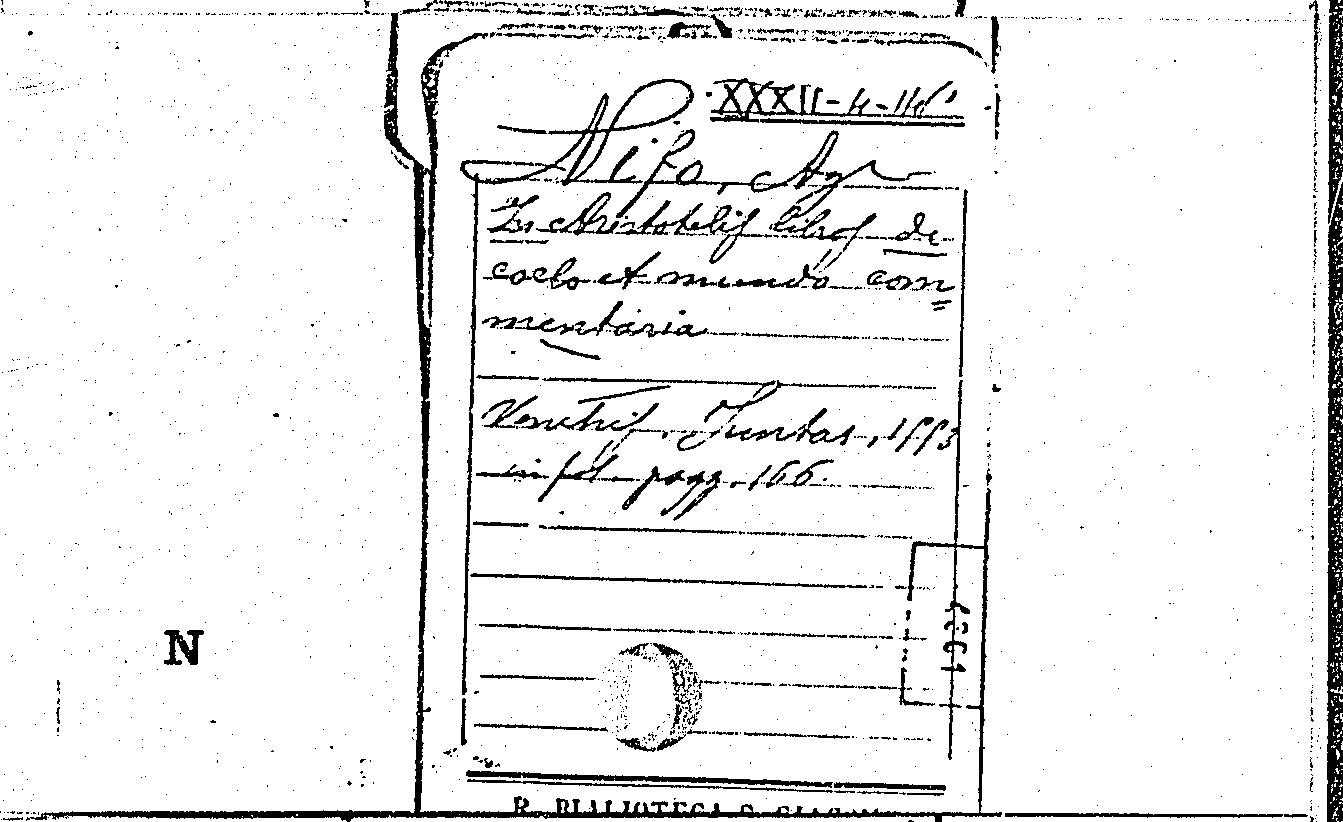 XXXII-4-
Nifo, Ag
In Aristotelis libros de
coelo et mundo com=
mentaria
Venetiis, Juntas, 1553
in fol. pagg. 166.
N
R. BIBLIOTECA S. GIACOM